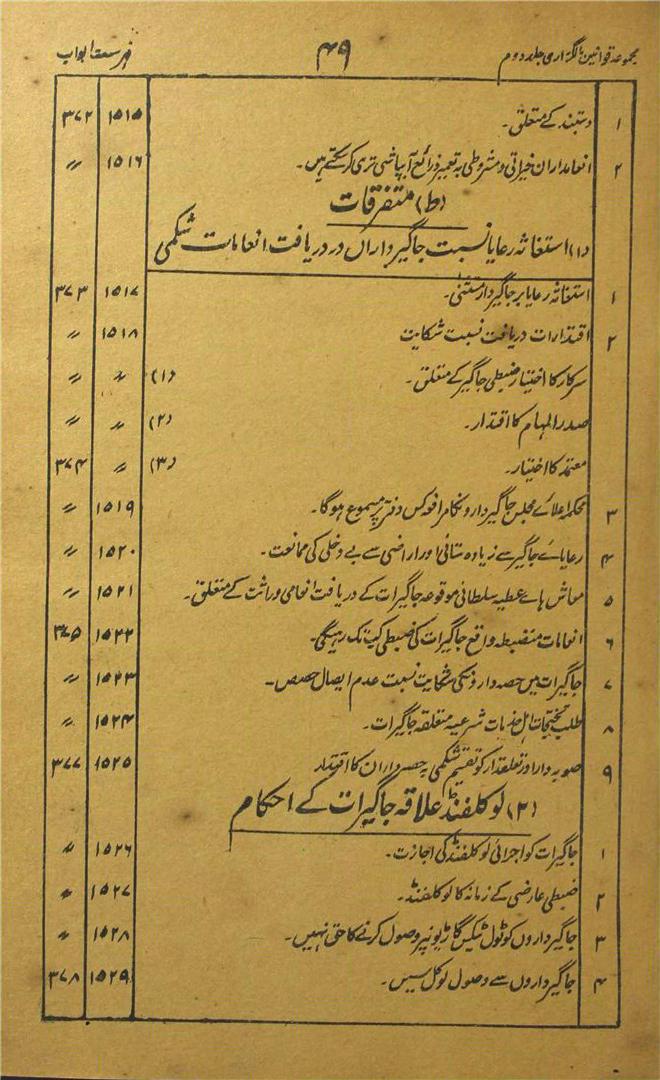 مجموعہ قوانین مالگزاری جلد دوم ۴۹ فہرست ابواب
۱ دستبند کے متعلق۔ ۱۵۱۵ ۳۷۲
۲ انعامداران خیراتی و مشروطی بہ تعمیر ذرائع آبپاشی تری کرسکتے ہیں۔ ۱۵۱۶ 〃
(ط) متفرقات
(۱) استغاثہ رعایا نسبت جاگیرداراں در دریافت انعامات شکمی
۱ استغاثہ رعایا بر جاگیردار مستثنیٰ۔ ۱۵۱۷ ۳۷۳
۲ اقتدارات دریافت نسبت شکایت ۱۵۱۸ 〃
سرکار کا اختیار ضبطی جاگیر کے متعلق۔ (۱) 〃 〃
صدر المہام کا اقتدار۔ (۲) 〃 〃
معتمد کا اختیار۔ (۳) 〃 ۳۷۴
۳ محکمہ اعلائے مجلس جاگیردار و نکا مرافعہ کس دفتر پر مسموع ہوگا۔ ۱۵۱۹ 〃
۴ رعایائے جاگیر سے زیادہ ستانی اور اراضی سے بے دخلی کی ممانعت۔ ۱۵۲۰ 〃
۵ معاش ہائے عطیہ سلطانی موقوعہ جاگیرات کے دریافت انعامی وراثت کے متعلق۔ ۱۵۲۱ 〃
۶ انعامات منضبطہ واقع جاگیرات کی ضبطی کب تک رہیگی۔ ۱۵۲۲ ۳۷۵
۷ جاگیرات میں حصہ داروں کی شکایت نسبت عدم ایصال حصص۔ ۱۵۲۳ 〃
۸ طلب اہل خدمات شرعیہ متعلقہ جاگیرات۔ ۱۵۲۴ 〃
۹ صوبہ دار اور تعلقدار کو تقسیم شکمی بہ حصہ داران کا اقتدار ۱۵۲۵ ۳۷۷
(۲) لوکلفنڈ علاقہ جاگیرات کے احکام
۱ جاگیرات کو اجرائی لوکلفنڈ کی اجازت۔ ۱۵۲۶ 〃
۲ ضبطی عارضی کے زمانہ کا لوکلفنڈ۔ ۱۵۲۷ 〃
۳ جاگیرداروں کو ٹول ٹیکس گاڑیوں پر وصول کرنے کا حق نہیں۔ ۱۵۲۸ 〃
۴ جاگیرداروں سے وصول لوکل سیس۔ ۱۵۲۹ ۳۷۸